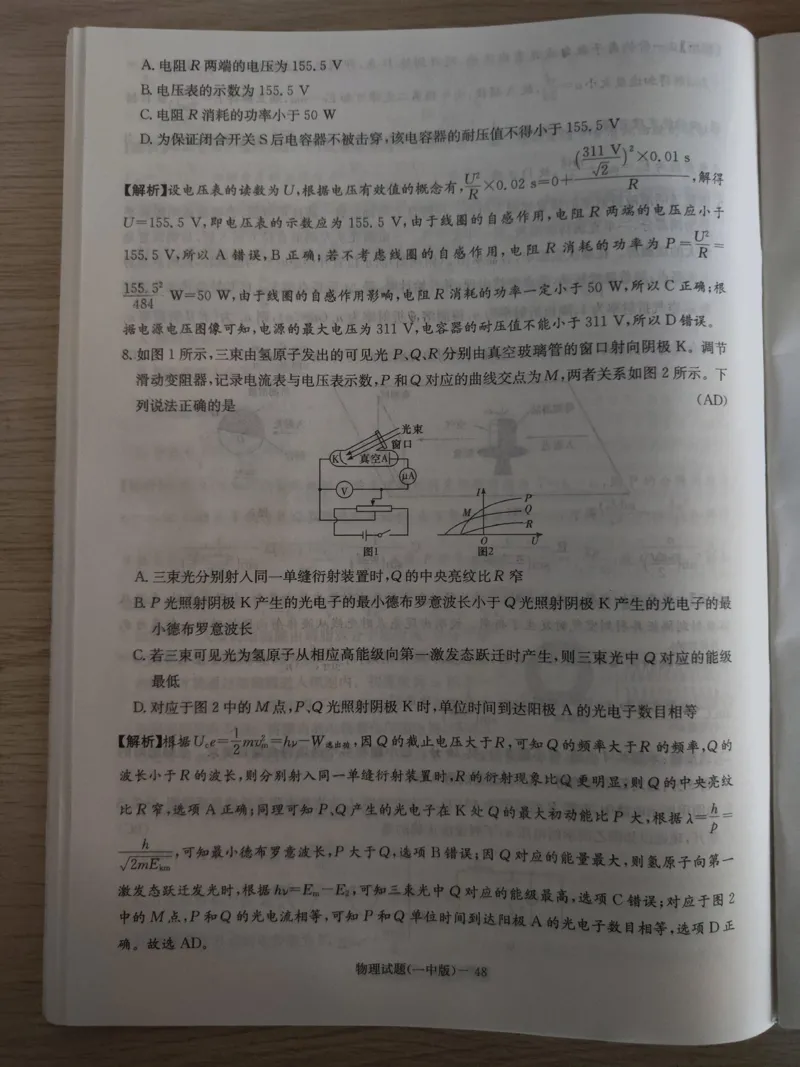 A. 电阻 R 两端的电压为 155.5 V
B. 电压表的示数为 155.5 V
C. 电阻 R 消耗的功率小于 50 W
D. 为保证闭合开关 S 后电容器不被击穿,该电容器的耐压值不得小于 155.5 V
【解析】设电压表的读数为 U,根据电压有效值的概念有, U²/R ×0.02 s=0+ (311 V/√2)²×0.01 s / R ,解得
U=155.5 V,即电压表的示数应为 155.5 V,由于线圈的自感作用,电阻 R 两端的电压应小于
155.5 V,所以 A 错误,B 正确;若不考虑线圈的自感作用,电阻 R 消耗的功率为 P= U²/R =
155.5²/484 W=50 W,由于线圈的自感作用影响,电阻 R 消耗的功率一定小于 50 W,所以 C 正确;根
据电源电压图像可知,电源的最大电压为 311 V,电容器的耐压值不能小于 311 V,所以 D 错误。
8. 如图 1 所示,三束由氢原子发出的可见光 P、Q、R 分别由真空玻璃管的窗口射向阴极 K。调节
滑动变阻器,记录电流表与电压表示数,P 和 Q 对应的曲线交点为 M,两者关系如图 2 所示。下
列说法正确的是 (AD)
光束
窗口
K 真空 A
μA
V
I P
M Q
R
O U
图1 图2
A. 三束光分别射入同一单缝衍射装置时,Q 的中央亮纹比 R 窄
B. P 光照射阴极 K 产生的光电子的最小德布罗意波长小于 Q 光照射阴极 K 产生的光电子的最
小德布罗意波长
C. 若三束可见光为氢原子从相应高能级向第一激发态跃迁时产生,则三束光中 Q 对应的能级
最低
D. 对应于图 2 中的 M 点,P、Q 光照射阴极 K 时,单位时间到达阳极 A 的光电子数目相等
【解析】根据 U꜀e= 1/2 mv²ₘ=hν−W逸出功,因 Q 的截止电压大于 R,可知 Q 的频率大于 R 的频率,Q 的
波长小于 R 的波长,则分别射入同一单缝衍射装置时,R 的衍射现象比 Q 更明显,则 Q 的中央亮纹
比 R 窄,选项 A 正确;同理可知 P、Q 产生的光电子在 K 处 Q 的最大初动能比 P 大,根据 λ= h/p =
h/√2mEₖₘ ,可知最小德布罗意波长,P 大于 Q,选项 B 错误;因 Q 对应的能量最大,则氢原子向第一
激发态跃迁发光时,根据 hν=Eₘ−E₂,可知三束光中 Q 对应的能级最高,选项 C 错误;对应于图 2
中的 M 点,P 和 Q 的光电流相等,可知 P 和 Q 单位时间到达阳极 A 的光电子数目相等,选项 D 正
确。故选 AD。
物理试题(一中版)－ 48